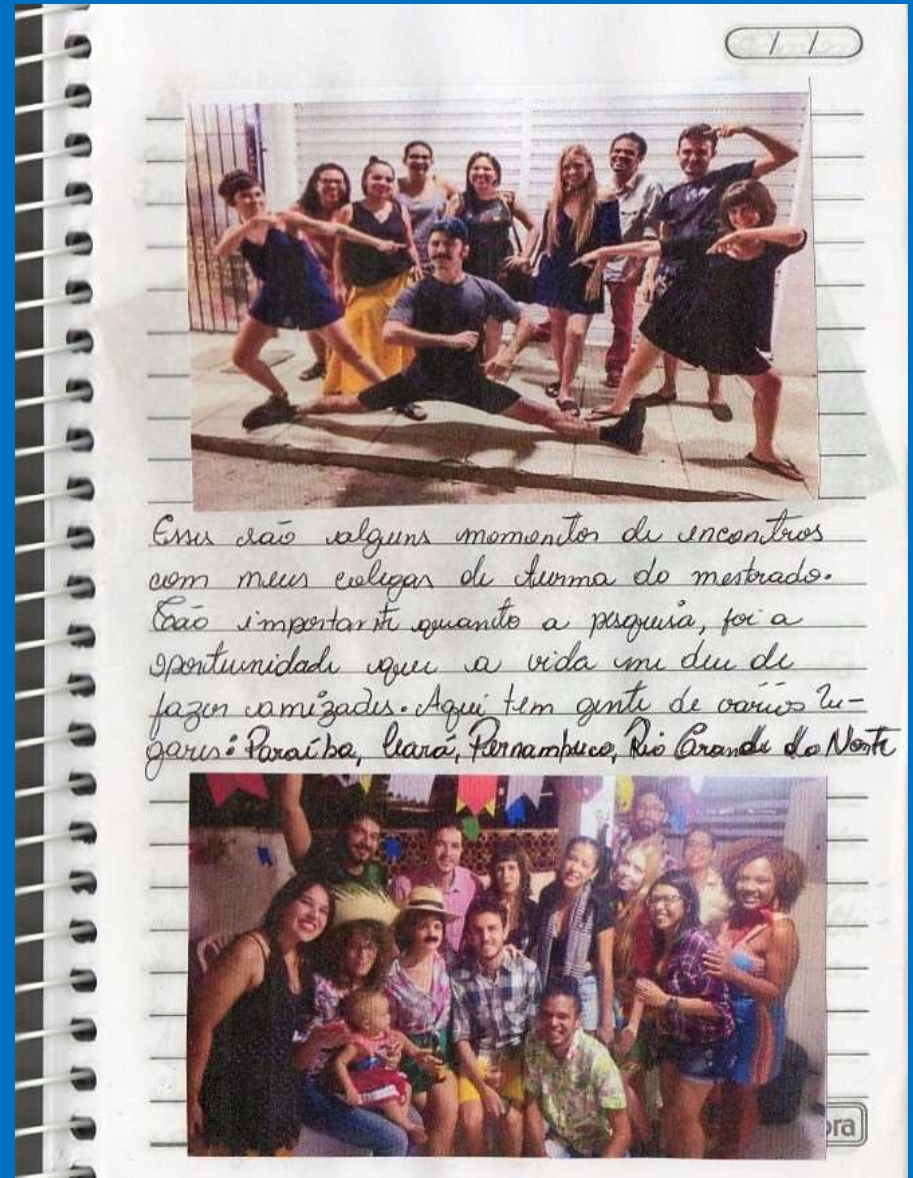 / /
Esses são alguns momentos de encontros
com meus colegas de turma do mestrado.
Tão importante quanto a pesquisa, foi a
oportunidade que a vida me deu de
fazer amizades. Aqui tem gente de vários lu-
gares: Paraíba, Ceará, Pernambuco, Rio Grande do Norte
ora